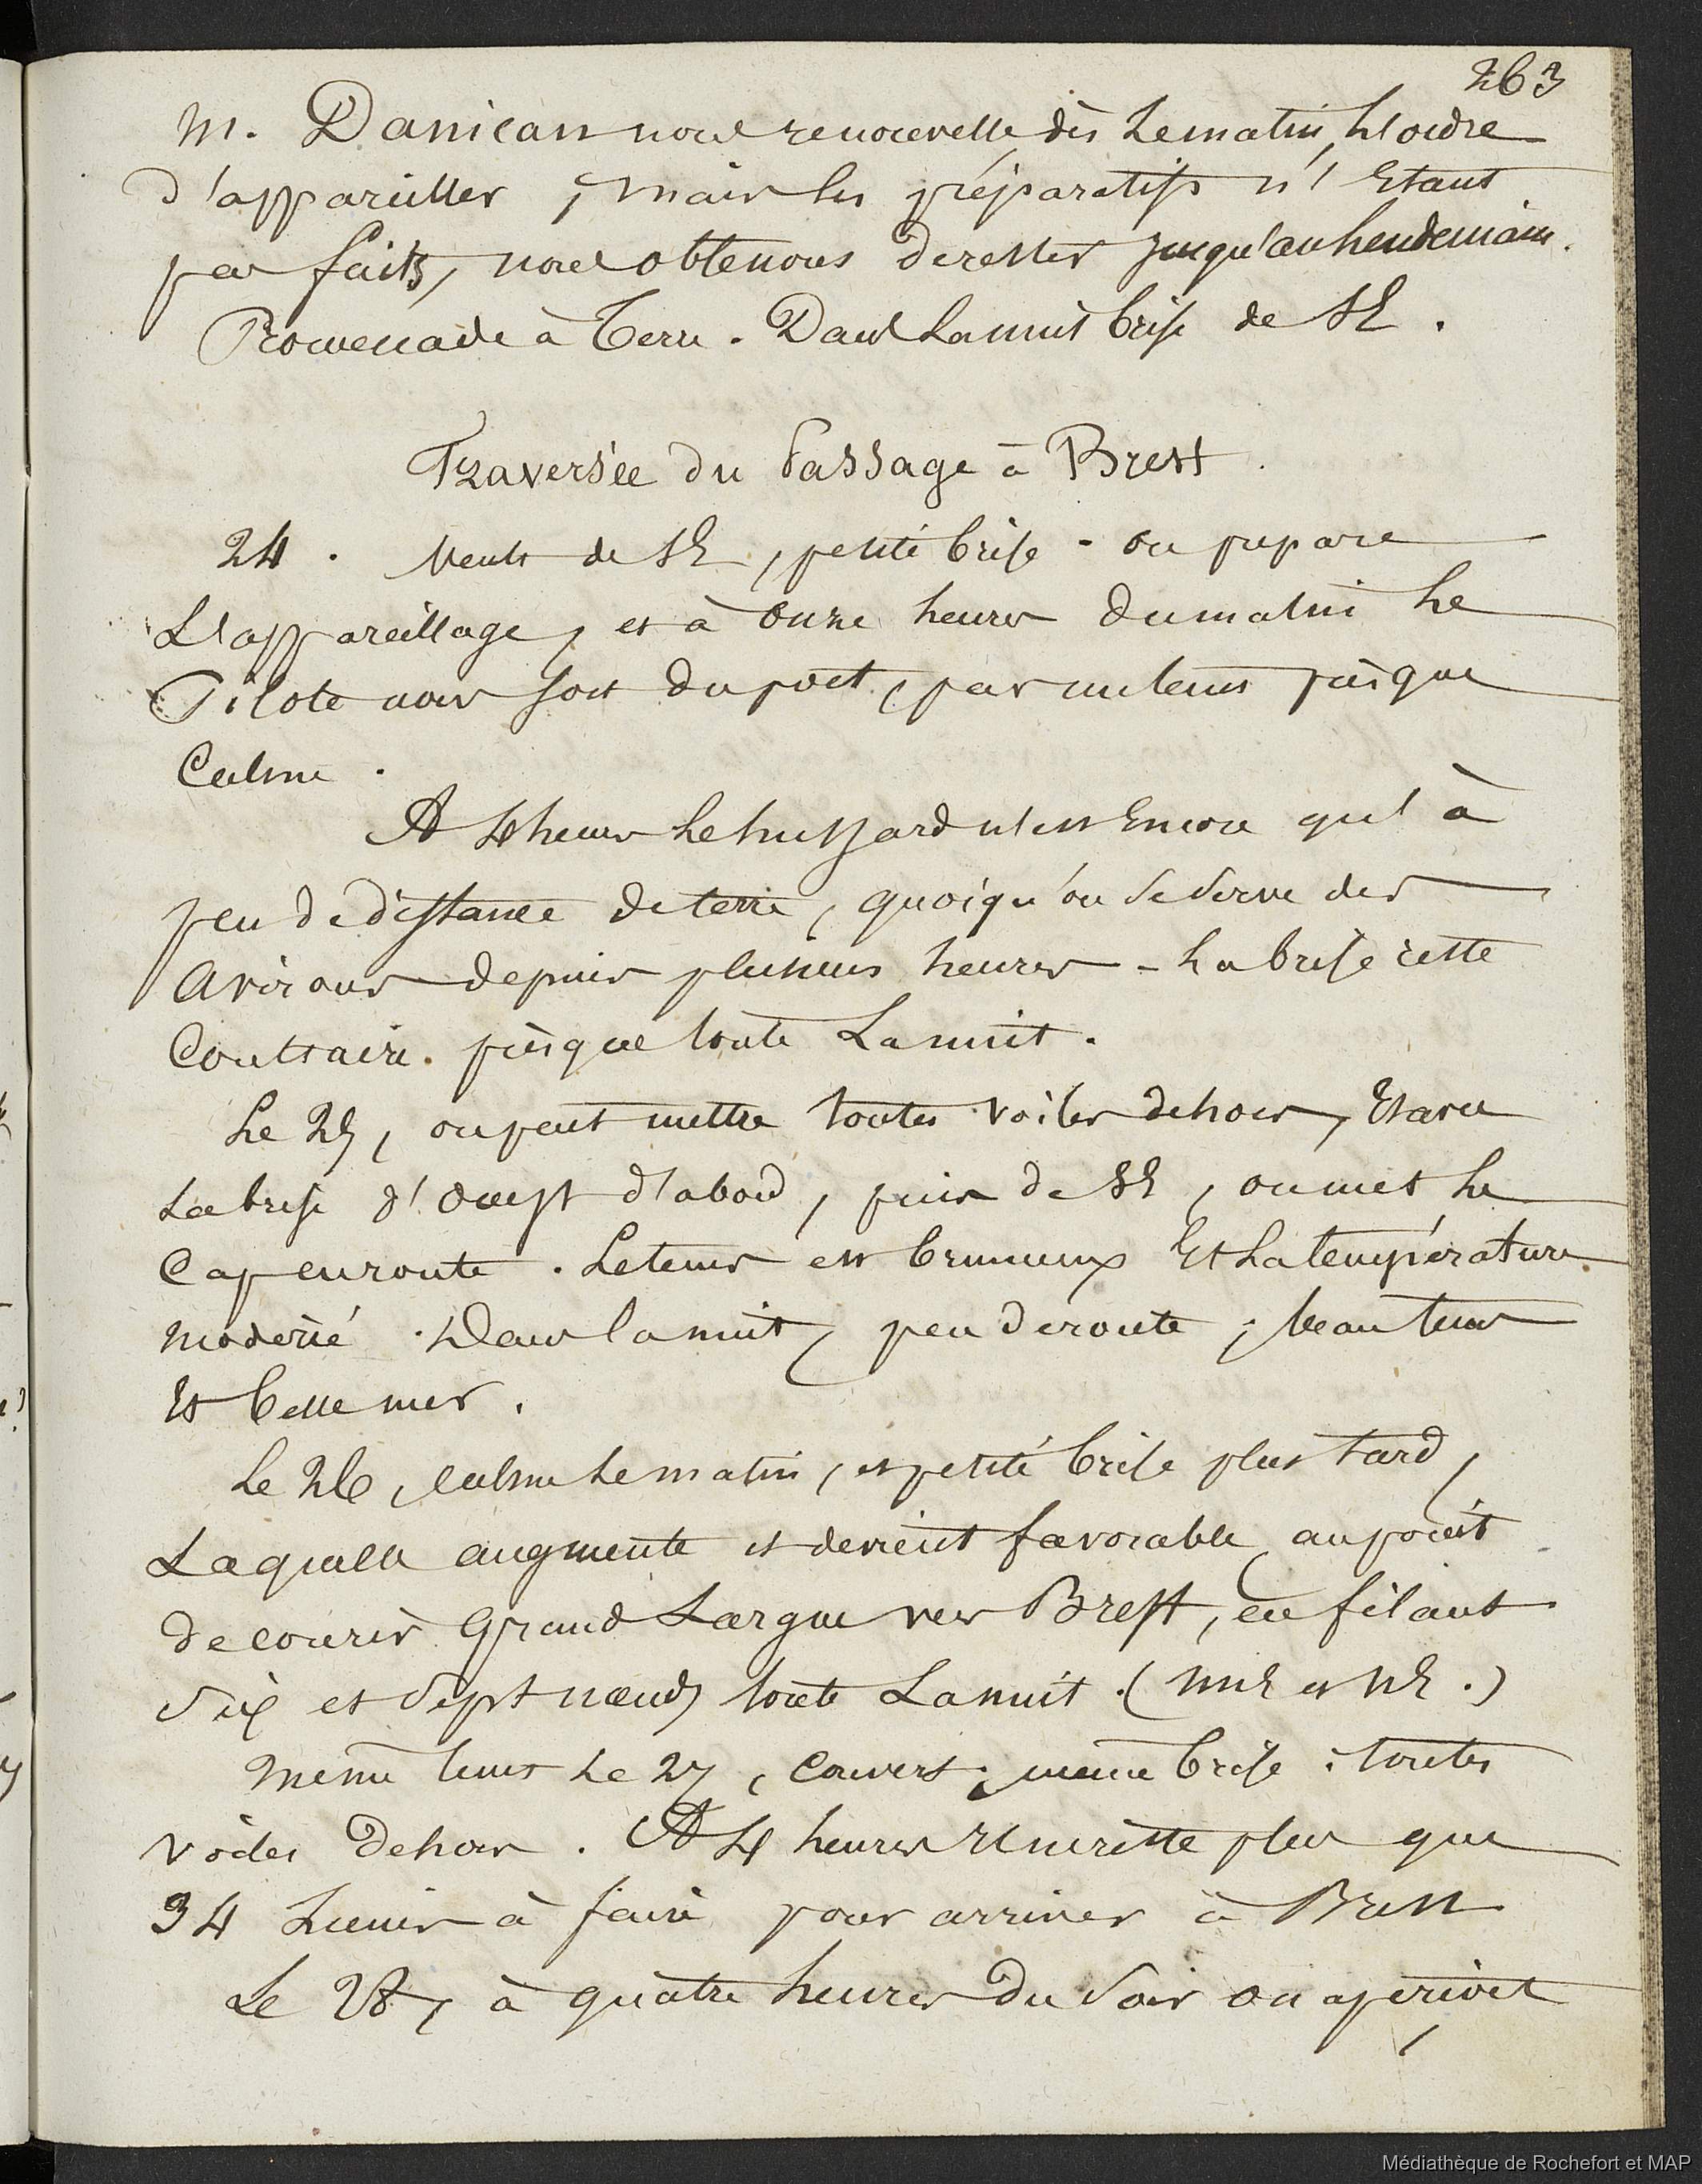 263
M. Danican nous renouvelle dès le matin, l'ordre
d'appareiller, mais les préparatifs n'étant
pas faits, nous obtenons de rester jusqu'au lendemain.
Promenade à terre. Dans la nuit brise de SE.
Traversée du Passage à Brest.
24. Vents de SE, petite brise - on prépare
L'appareillage, et à onze heures du matin le
Pilote nous sort du port, par un tems presque
Calme.
A 4 heures le hussard n'est encore qu'à
peu de distance de terre, quoiqu'on se serve des
avirons depuis plusieurs heures - La brise reste
Contraire presque toute La nuit.
Le 25, on peut mettre toutes voiles dehors, Et avec
La brise d'ouest d'abord, puis de SE, on met le
Cap en route. Le tems est brumeux Et La température
modérée. Dans la nuit, peu de route; beau tems
Et belle mer.
Le 26, calme le matin, et petite brise plus tard,
Laquelle augmente et devient favorable, au point
de courir Grand Largue vers Brest, en filant
six et sept nœuds toute La nuit. (NNE et NE.)
Même tems Le 27, couvert; même brise; toutes
voiles Dehors. A 4 heures il ne reste plus que
34 Lieues à faire pour arriver à Brest
Le 28, à quatre heures Du soir on aperçoit
Médiathèque de Rochefort et MAP